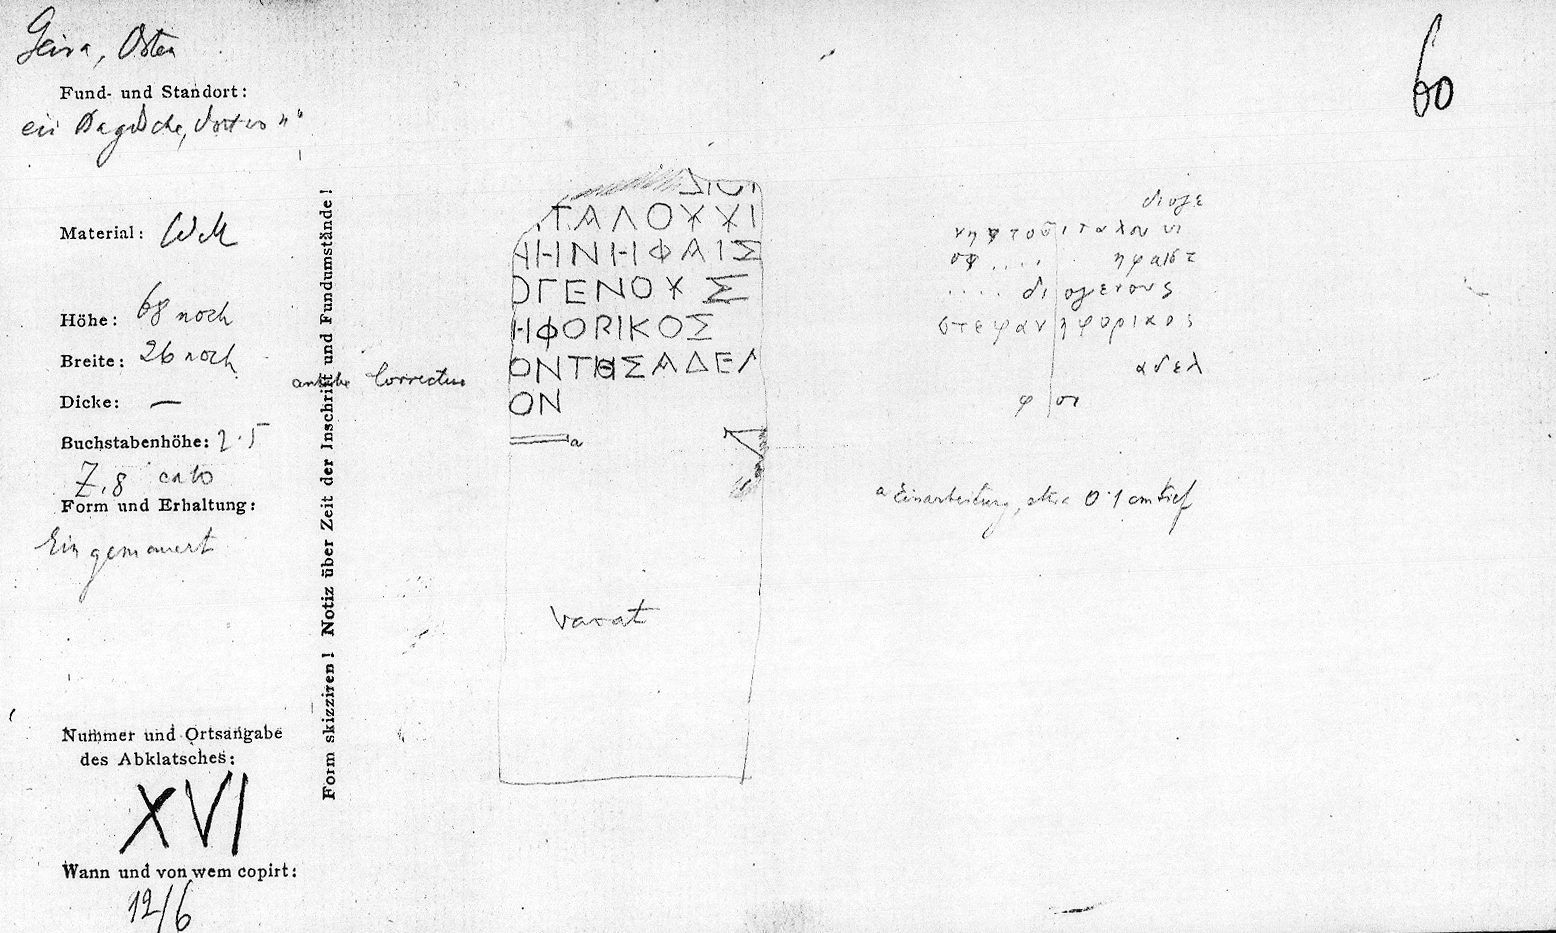 Geira, Osten
60
Fund- und Standort:
Material: WM
Höhe: 68 noch
Breite: 26 noch
Dicke: —
Buchstabenhöhe: 2.5
Z. 8
Form und Erhaltung:
Eingemauert
Nummer und Ortsangabe
des Abklatsches:
XVI
Wann und von wem copirt:
12/6
Form skizziren! Notiz über Zeit der Inschrift und Fundumstände!
antike Correctur
ΤΑΛΟΥΥΙ
ΗΝΗΦΑΙΣ
ΟΓΕΝΟΥΣ
ΗΦΟΡΙΚΟΣ
ΟΝΤΗΣΑΔΕΛ
ΟΝ
a
vacat
διογε
νη τοῦ ιταλου υι
ηφαιστ
.... δι ογενους
στεφαν ηφορικος
αδελ
φ ον
a Einarbeitung, etwa 0·1 cm tief